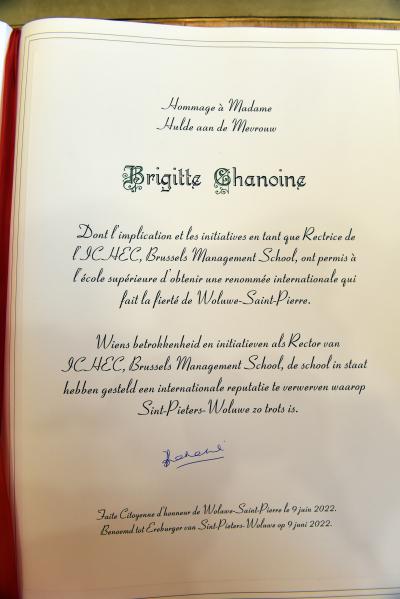 Hommage à Madame
Hulde aan de Mevrouw
Brigitte Chanoine
Dont l'implication et les initiatives en tant que Rectrice de
l'ICHEC, Brussels Management School, ont permis à
l'école supérieure d'obtenir une renommée internationale qui
fait la fierté de Woluwe-Saint-Pierre.
Wiens betrokkenheid en initiatieven als Rector van
ICHEC, Brussels Management School, de school in staat
hebben gesteld een internationale reputatie te verwerven waarop
Sint-Pieters-Woluwe zo trots is.
Faite Citoyenne d'honneur de Woluwe-Saint-Pierre le 9 juin 2022.
Benoemd tot Ereburger van Sint-Pieters-Woluwe op 9 juni 2022.